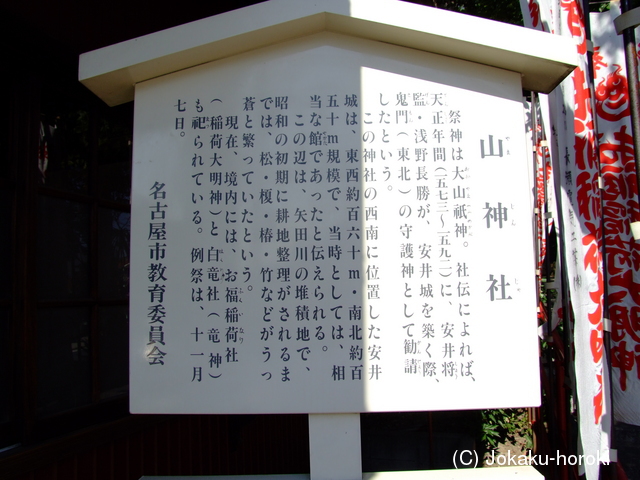 山神社
祭神は大山祇神。社伝によれば、
天正年間(一五七三〜一五九二)に、安井将
監・浅野長勝が、安井城を築く際、
鬼門(東北)の守護神として勧請
したという。
この神社の西南に位置した安井
城は、東西約百六十m・南北約百
五十m規模で、当時としては、相
当な館であったと伝えられる。
この辺は、矢田川の堆積地で、
昭和の初期に耕地整理がされるま
では、松・榎・椿・竹などがうっ
蒼と繁っていたという。
現在、境内には、お福稲荷社
(稲荷大明神)と白竜社(竜神)
も祀られている。例祭は、十一月
七日。
名古屋市教育委員会
(C) Jokaku-horoki